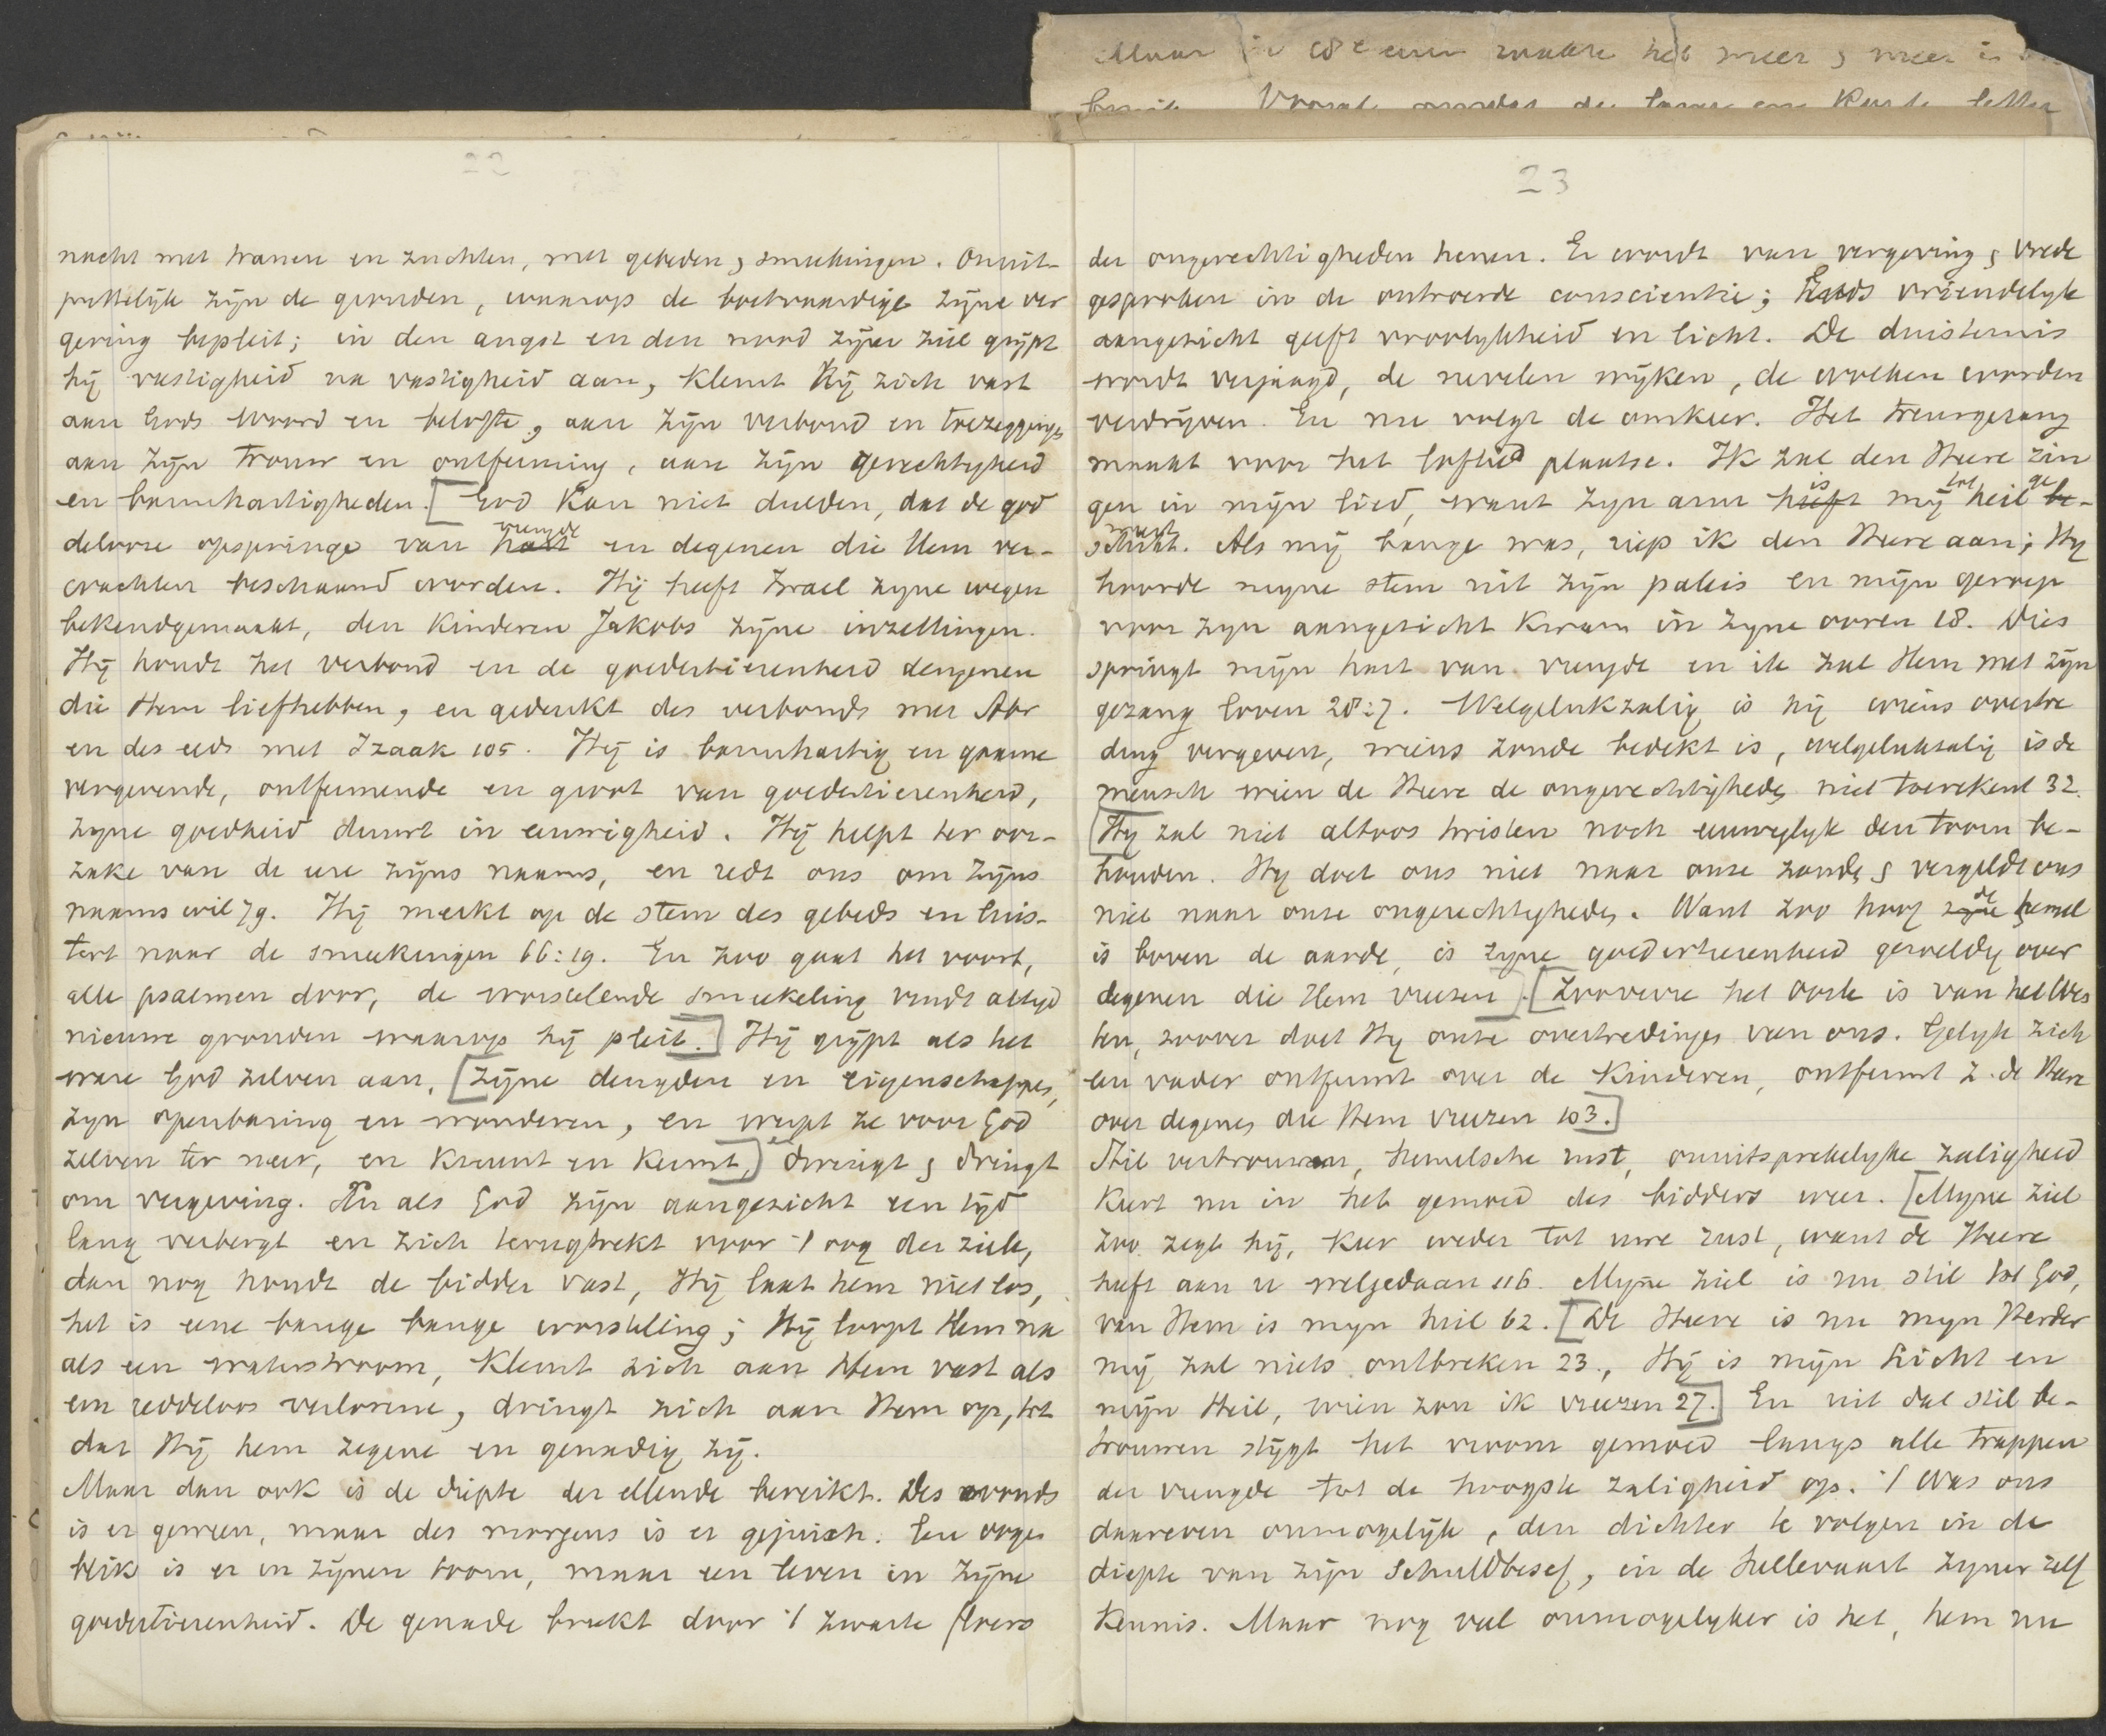 Maar in 18e eeuw raakte het meer & meer is
Vooral omdat de lange en korte letter
22
nacht met tranen en zuchten, met gebeden & smeekingen. Onuit-
puttelijk zijn de gronden, waarop de boetvaardige zijne ver
geving bepleit; in den angst en den nood zijner ziel grijpt
hij vastigheid na vastigheid aan, klemt hij zich vast
aan Gods woord en belofte, aan zijn verbond en toezeggingen
aan zijn trouw en ontferming, aan zijn gerechtigheid
en barmhartigheden. [God kan niet dulden, dat de god
delooze opspringe van hart vreugde en degenen die Hem ver-
wachten beschaamd worden. Hij heeft Israel zijne wegen
bekendgemaakt, den kinderen Jakobs zijne inzettingen.
Hij houdt het verbond en de goedertierenheid dengenen
die Hem liefhebben, en gedenkt des verbonds met Abr
en des eeds met Izaak 105. Hij is barmhartig en gaarne
vergevende, ontfermende en groot van goedertierenheid,
zijne goedheid duurt in eeuwigheid. Hij helpt ter oor-
zake van de eere zijns naams, en redt ons om zijns
naams wil 79. Hij merkt op de stem des gebeds en luis-
tert naar de smeekingen 66:19. En zoo gaat het voort,
alle psalmen door, de worstelende smeekeling vindt altijd
nieuwe gronden waarop hij pleit.] Hij grijpt als het
ware God zelven aan, [zijne deugden en eigenschappen,
zijn openbaring en wonderen, en werpt ze voor God
zelven ter neer, en kreunt en kermt,] dwingt & dringt
om vergeving. En als God zijn aangezicht een tijd
lang verbergt en zich terugtrekt voor 't oog der ziele,
dan nog houdt de bidder vast, Hij laat hem niet los,
het is eene bange bange worsteling; Hij loopt Hem na
als een waterstroom, klemt zich aan Hem vast als
een reddeloos verlorene, dringt zich aan Hem op, tot
dat Hij hem zegene en genadig zij.
Maar dan ook is de diepte der ellende bereikt. Des avonds
is er geween, maar des morgens is er gejuich. Een oogen
blik is er in zijnen toorn, maar een leven in zijne
goedertierenheid. De genade breekt door 't zwarte floers
23
der ongerechtigheden henen. Er wordt van vergeving & vrede
gesproken in de ontroerde conscientie; Gods vriendelijk
aangezicht geeft vroolijkheid en licht. De duisternis
wordt verjaagd, de nevelen wijken, de wolken worden
verdrijven. En nu volgt de omkeer. Het treurgezang
maakt voor het loflied plaatse. Ik zal den Heere zin
gen in mijn lied, want zijn arm heeft is mij tot heil be- ge
schikt. weest. Als mij bange was, riep ik den Heere aan; Hij
hoorde mijne stem uit zijn paleis en mijn geroep
voor zijn aangezicht kwam in zijne ooren 18. Dies
springt mijn hart van vreugde en ik zal Hem met mijn
gezang loven 28:7. Welgelukzalig is hij wiens overtre
ding vergeven, wiens zonde bedekt is, welgelukzalig is de
mensch wien de Heere de ongerechtigheden niet toerekent 32.
[Hij zal niet altoos twisten noch eeuwiglijk den toorn be-
houden. Hij doet ons niet naar onze zonden & vergeldt ons
niet naar onze ongerechtigheden. Want zoo hoog zijne de hemel
is boven de aarde, is zijne goedertierenheid geweldig over
degenen die Hem vreezen]. [Zooverre het Oosten is van het Wes
ten, zoover doet Hij onze overtredingen van ons. Gelijk zich
een vader ontfermt over de kinderen, ontfermt z. de Heere
over degenen die Hem vreezen 103.]
Stil vertrouwen, hemelsche rust, onuitsprekelijke zaligheid
keert nu in het gemoed des bidders weer. [Mijne ziel
zoo zegt hij, keer weder tot uwe rust, want de Heere
heeft aan u welgedaan 116. Mijne ziel is nu stil tot God,
van Hem is mijn heil 62. [De Heere is nu mijn Herder
mij zal niets ontbreken 23., Hij is mijn Licht en
mijn Heil, wien zou ik vreezen 27.] En uit dat stil be-
trouwen stijgt het vroom gemoed langs alle trappen
der vreugde tot de hoogste zaligheid op. 't Was ons
daareven onmogelijk, den dichter te volgen in de
diepte van zijn schuldbesef, in de hellevaart zijner zelf
kennis. Maar nog veel onmogelijker is het, hem nu